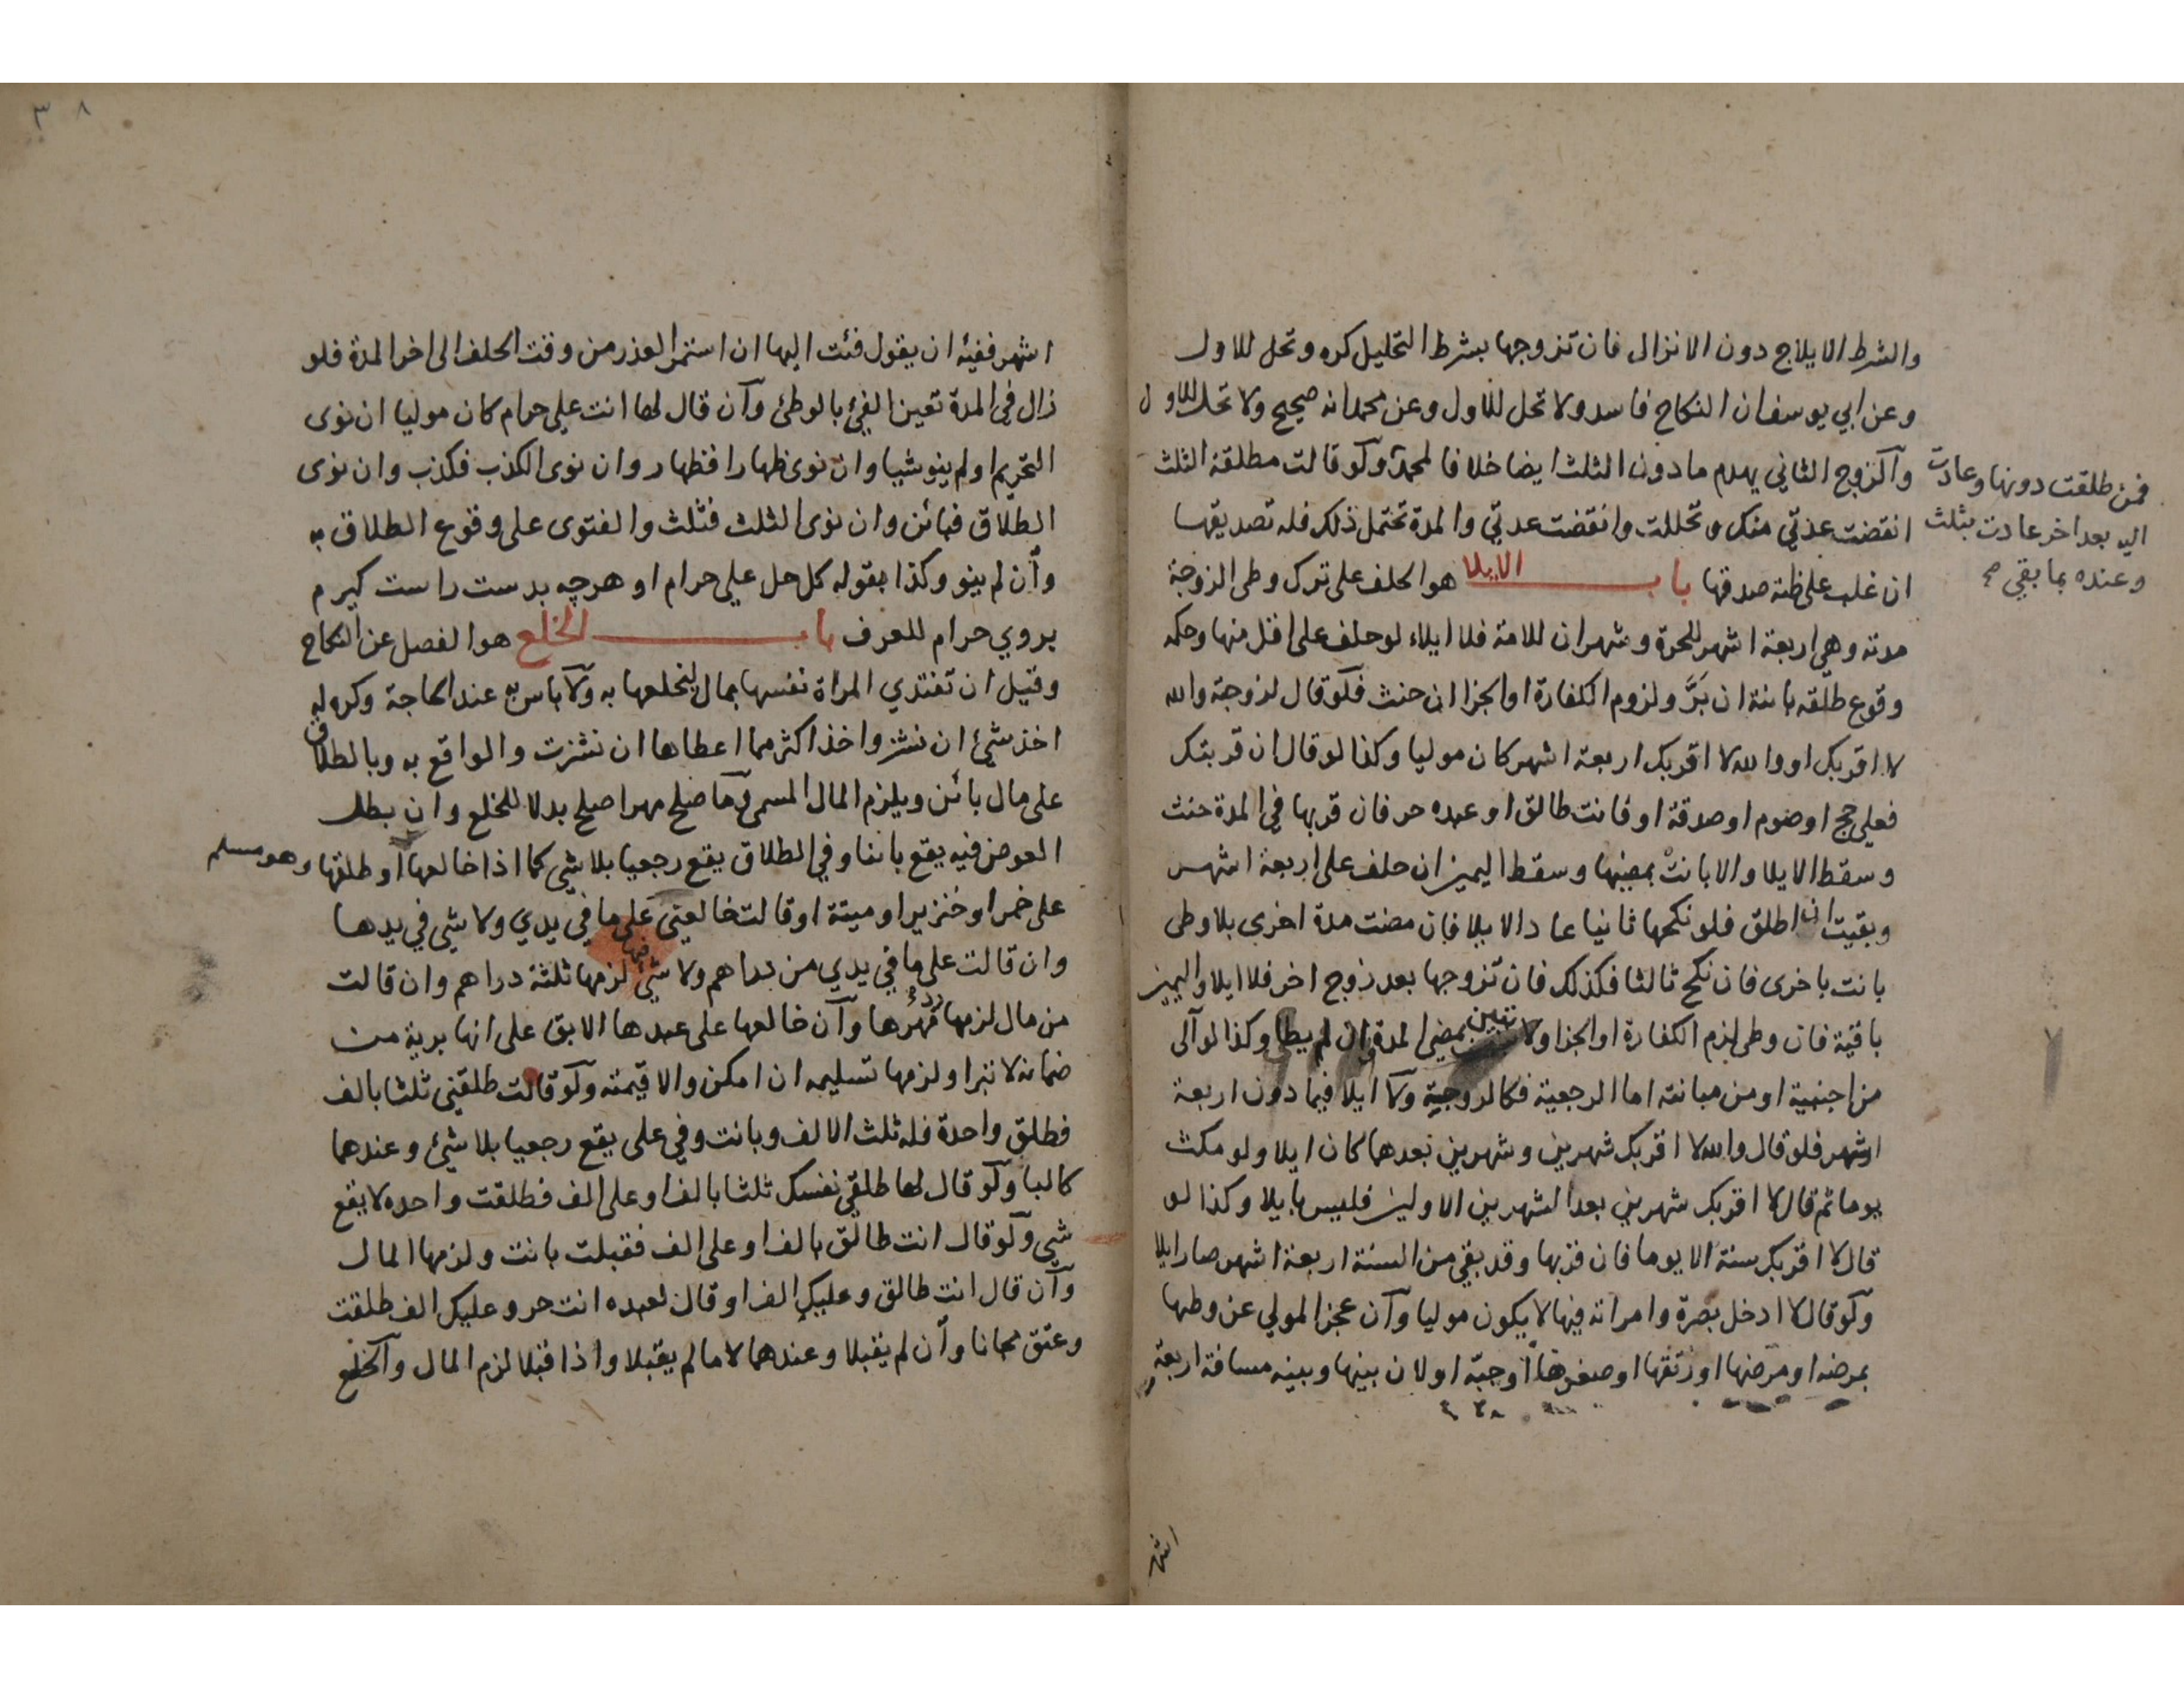 والشرط الايلاج دون الانزال فان تزوجها بشرط التحليل كره وتحل للاول
وعن ابي يوسف ان النكاح فاسد ولا تحل للاول وعن محمد انه صحيح ولا تحل للاول
والزوج الثاني يهدم ما دون الثلث ايضا خلافا لمحمد ولو قالت مطلقة الثلث
انقضت عدتي منك وتحللت وانقضت عدتي والمدة تحتمل ذلك فله تصديقها
ان غلب على ظنه صدقها باب الايلا هو الحلف على ترك وطى الزوجة
مدته وهي اربعة اشهر للحرة وشهران للامة فلا ايلاء لو حلف على اقل منها وحكمه
وقوع طلقه بائنة ان بَرَّ ولزوم الكفارة او الجزا ان حنث فلو قال لزوجته والله
لا اقربك او والله لا اقربك اربعة اشهر كان موليا وكذا لو قال ان قربتك
فعلي حج او صوم او صدقة او فانت طالق او عبده حر فان قربها في المدة حنث
وسقط الايلا والا بانت بمضيها وسقط اليمين ان حلف على اربعة اشهر
وبقيت ان اطلق فلو نكحها ثانيا عاد الايلا فان مضت مدة اخرى بلا وطى
بانت باخرى فان نكح ثالثا فكذلك فان تزوجها بعد زوج اخر فلا ايلا واليمين
باقية فان وطى لزم الكفارة او الجزا ولا تبين بمضي المدة وان لم يطا وكذا لو آلى
من اجنبية او من مبانته اما الرجعية فكالزوجية ولا ايلا فيما دون اربعة
اشهر فلو قال والله لا اقربك شهرين وشهرين بعدهما كان ايلا ولو مكث
يوما ثم قال لا اقربك شهرين بعد الشهرين الاولين فليس بايلا وكذا لو
قال لا اقربك سنة الا يوما فان قربها وقد بقي من السنة اربعة اشهر صار ايلا
ولو قال لا ادخل بصرة وامراته فيها لا يكون موليا وان عجز المولي عن وطيها
بمرضه او مرضها او رتقها او صغرها او جبه او لان بينها وبينه مسافة اربعة
اشهر
فمن طلقت دونها وعادت
اليه بعد اخر عادت بثلث
وعنده بما بقي صح
٣٨
اشهر ففيئه ان يقول فئت اليها ان استمر العذر من وقت الحلف الى اخر المدة فلو
زال في المدة تعين الفئ بالوطئ وان قال لها انت علي حرام كان موليا ان نوى
التحريم او لم ينو شيا وان نوى ظهارا فظهار وان نوى الكذب فكذب وان نوى
الطلاق فبائن وان نوى الثلث فثلث والفتوى على وقوع الطلاق به
وان لم ينو وكذا بقوله كل حل علي حرام او هرچه بدست راست كيرم
بروي حرام للعرف باب الخلع هو الفصل عن النكاح
وقيل ان تفتدي المراة نفسها بمال ليخلعها به ولا باس به عند الحاجة وكره له
اخذ شئ ان نشز واخذ اكثر مما اعطاها ان نشزت والواقع به وبالطلاق
على مال بائن ويلزم المال المسمى وما صلح مهرا صلح بدلا للخلع وان بطل
العوض فيه يقع بائنا وفي الطلاق يقع رجعيا بلا شي كما اذا خالعها او طلقها وهو مسلم
على خمر او خنزير او ميتة او قالت خالعني على ما في يدي ولا شي في يدها
وان قالت على ما في يدي من دراهم ولا شي فيها لزمها ثلثة دراهم وان قالت
من مال لزمها رد مهرها وان خالعها على عبدها الابق على انها برية من
ضمانه لا تبرا ولزمها تسليمه ان امكن والا قيمته ولو قالت طلقني ثلثا بالف
فطلق واحدة فله ثلث الالف وبانت وفي على يقع رجعيا بلا شئ وعندهما
كالبا ولو قال لها طلقي نفسك ثلثا بالف او على الف فطلقت واحده لا يقع
شي ولو قال انت طالق بالف او على الف فقبلت بانت ولزمها المال
وان قال انت طالق وعليك الف او قال لعبده انت حر وعليك الف طلقت
وعتق مجانا وان لم يقبلا وعندهما لا ما لم يقبلا واذا قبلا لزم المال والخلع